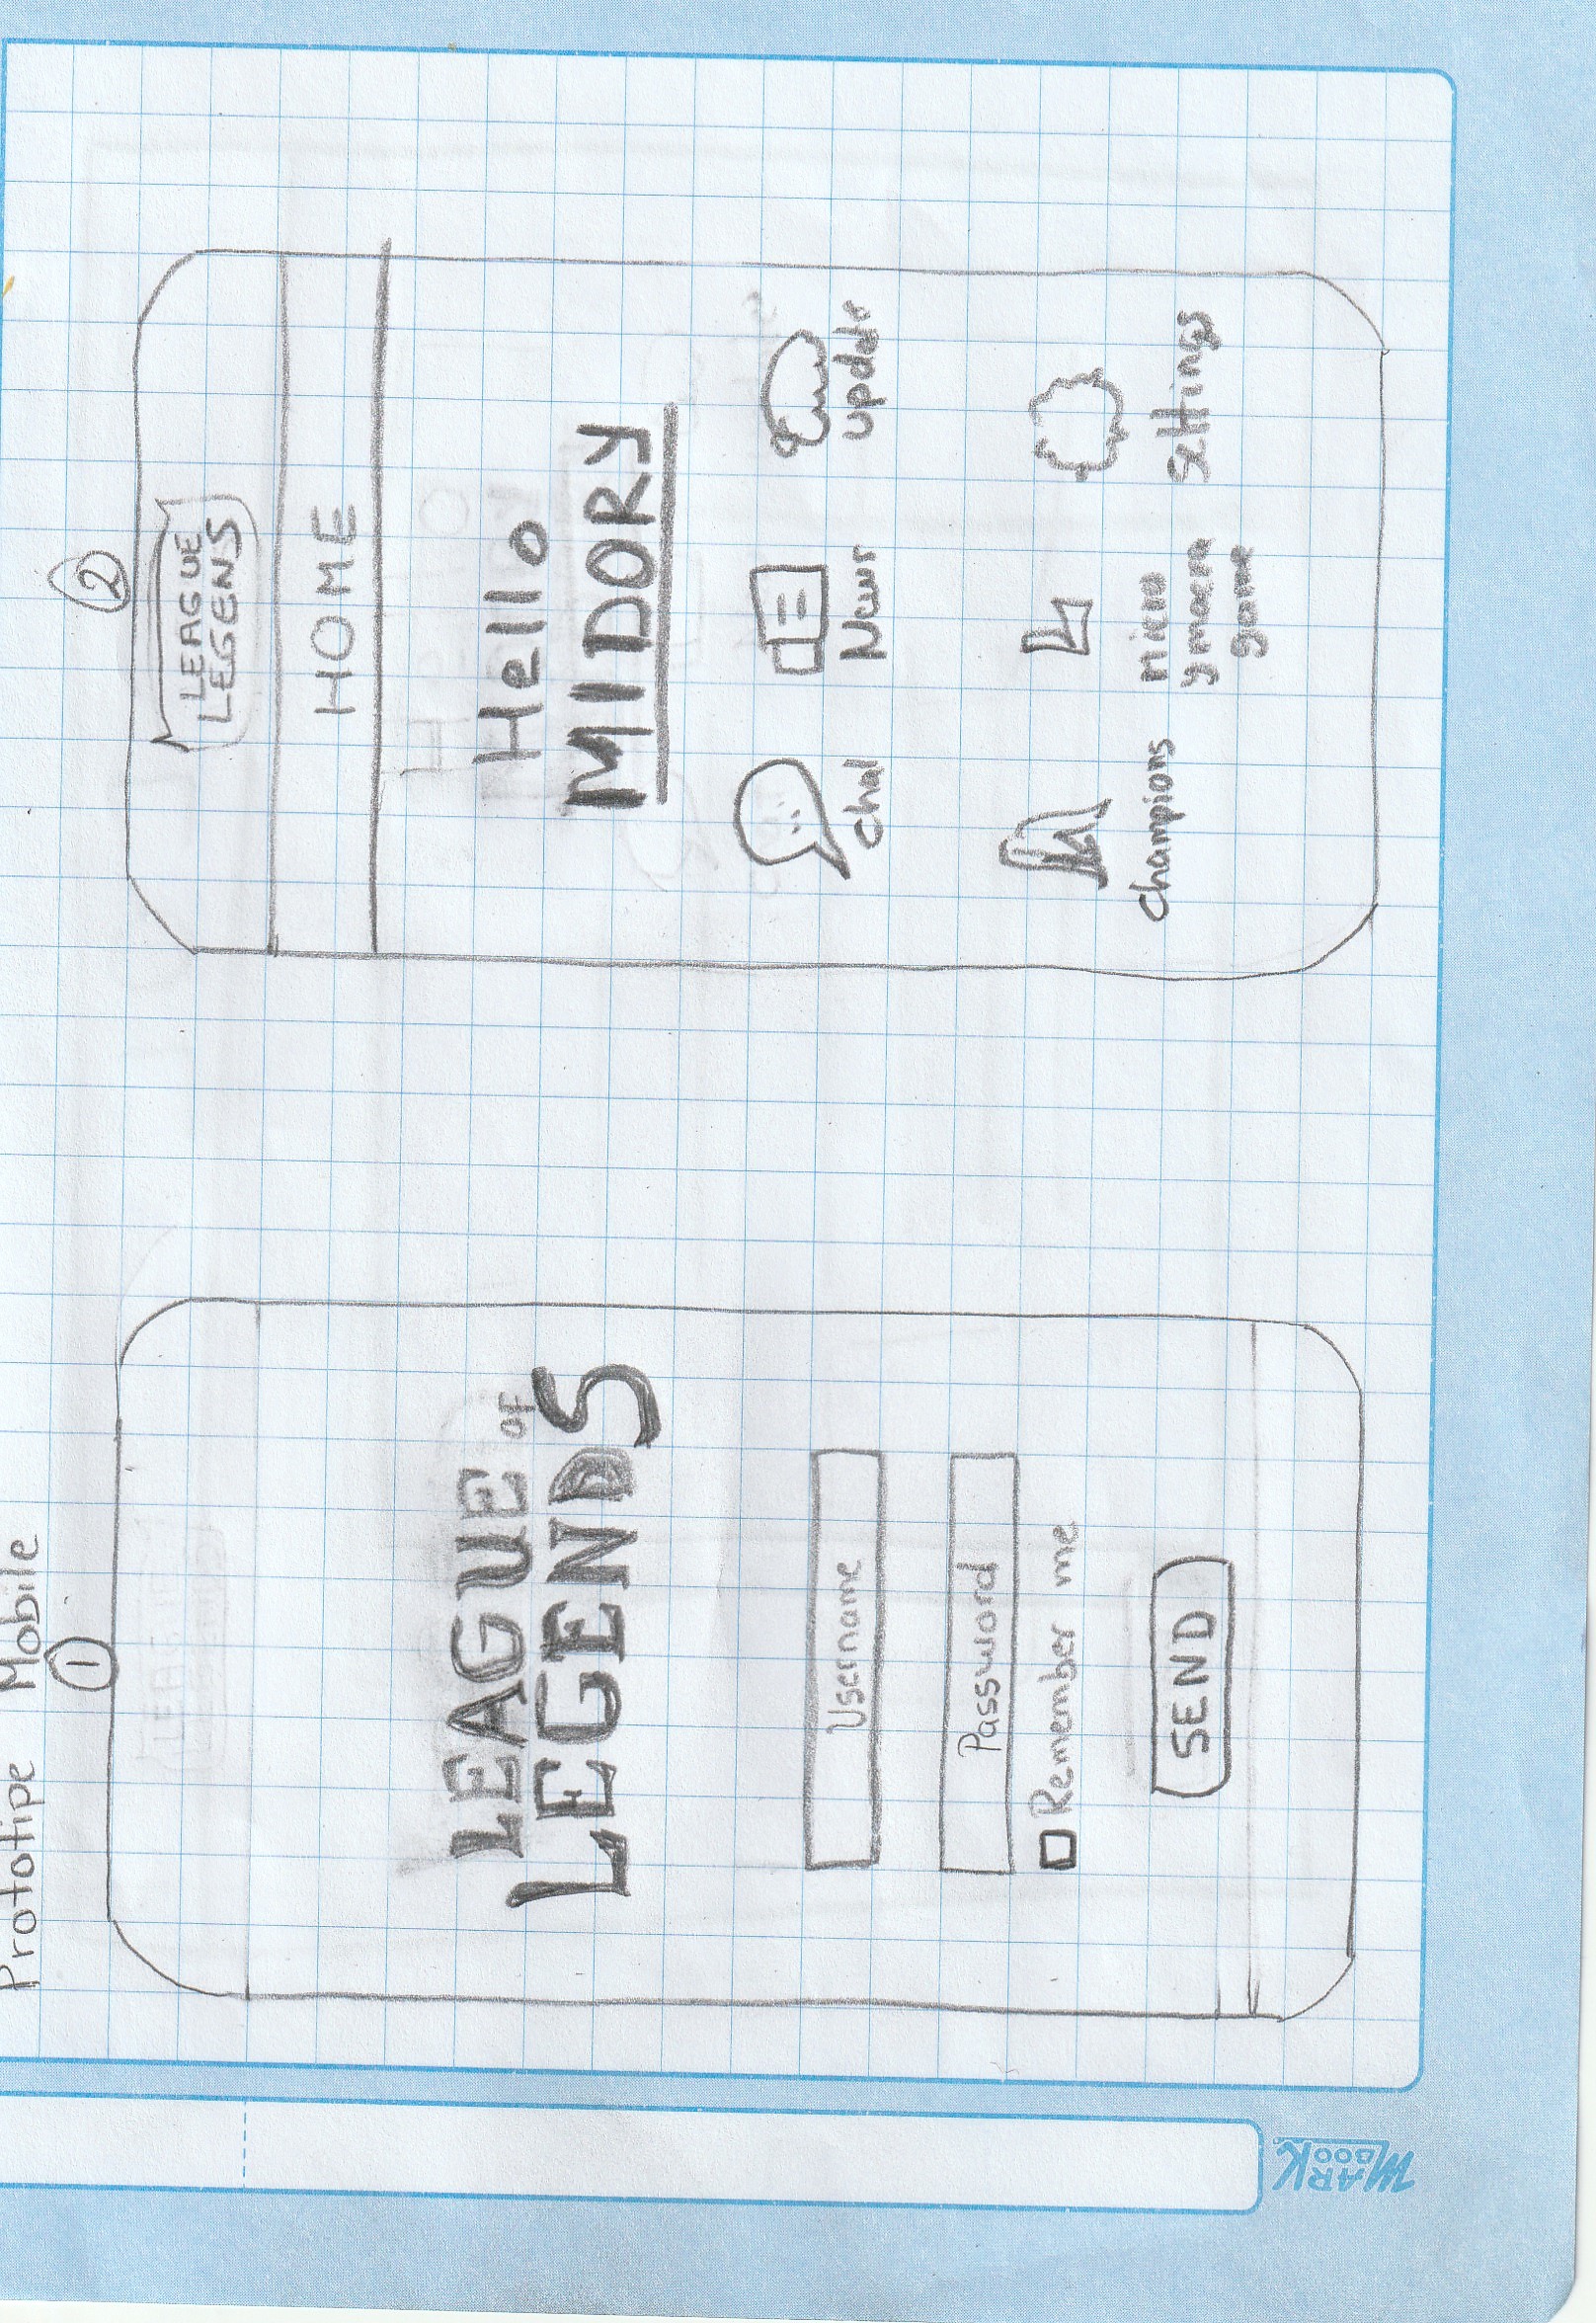 Prototipe Mobile
1
LEAGUE OF
LEGENDS
Username
Password
Remember me
SEND
2
LEAGUE
LEGENS
HOME
Hello
MIDORY
Chat
News
Update
Champions
Micro
y macro
game
Settings
MARK
BOOK